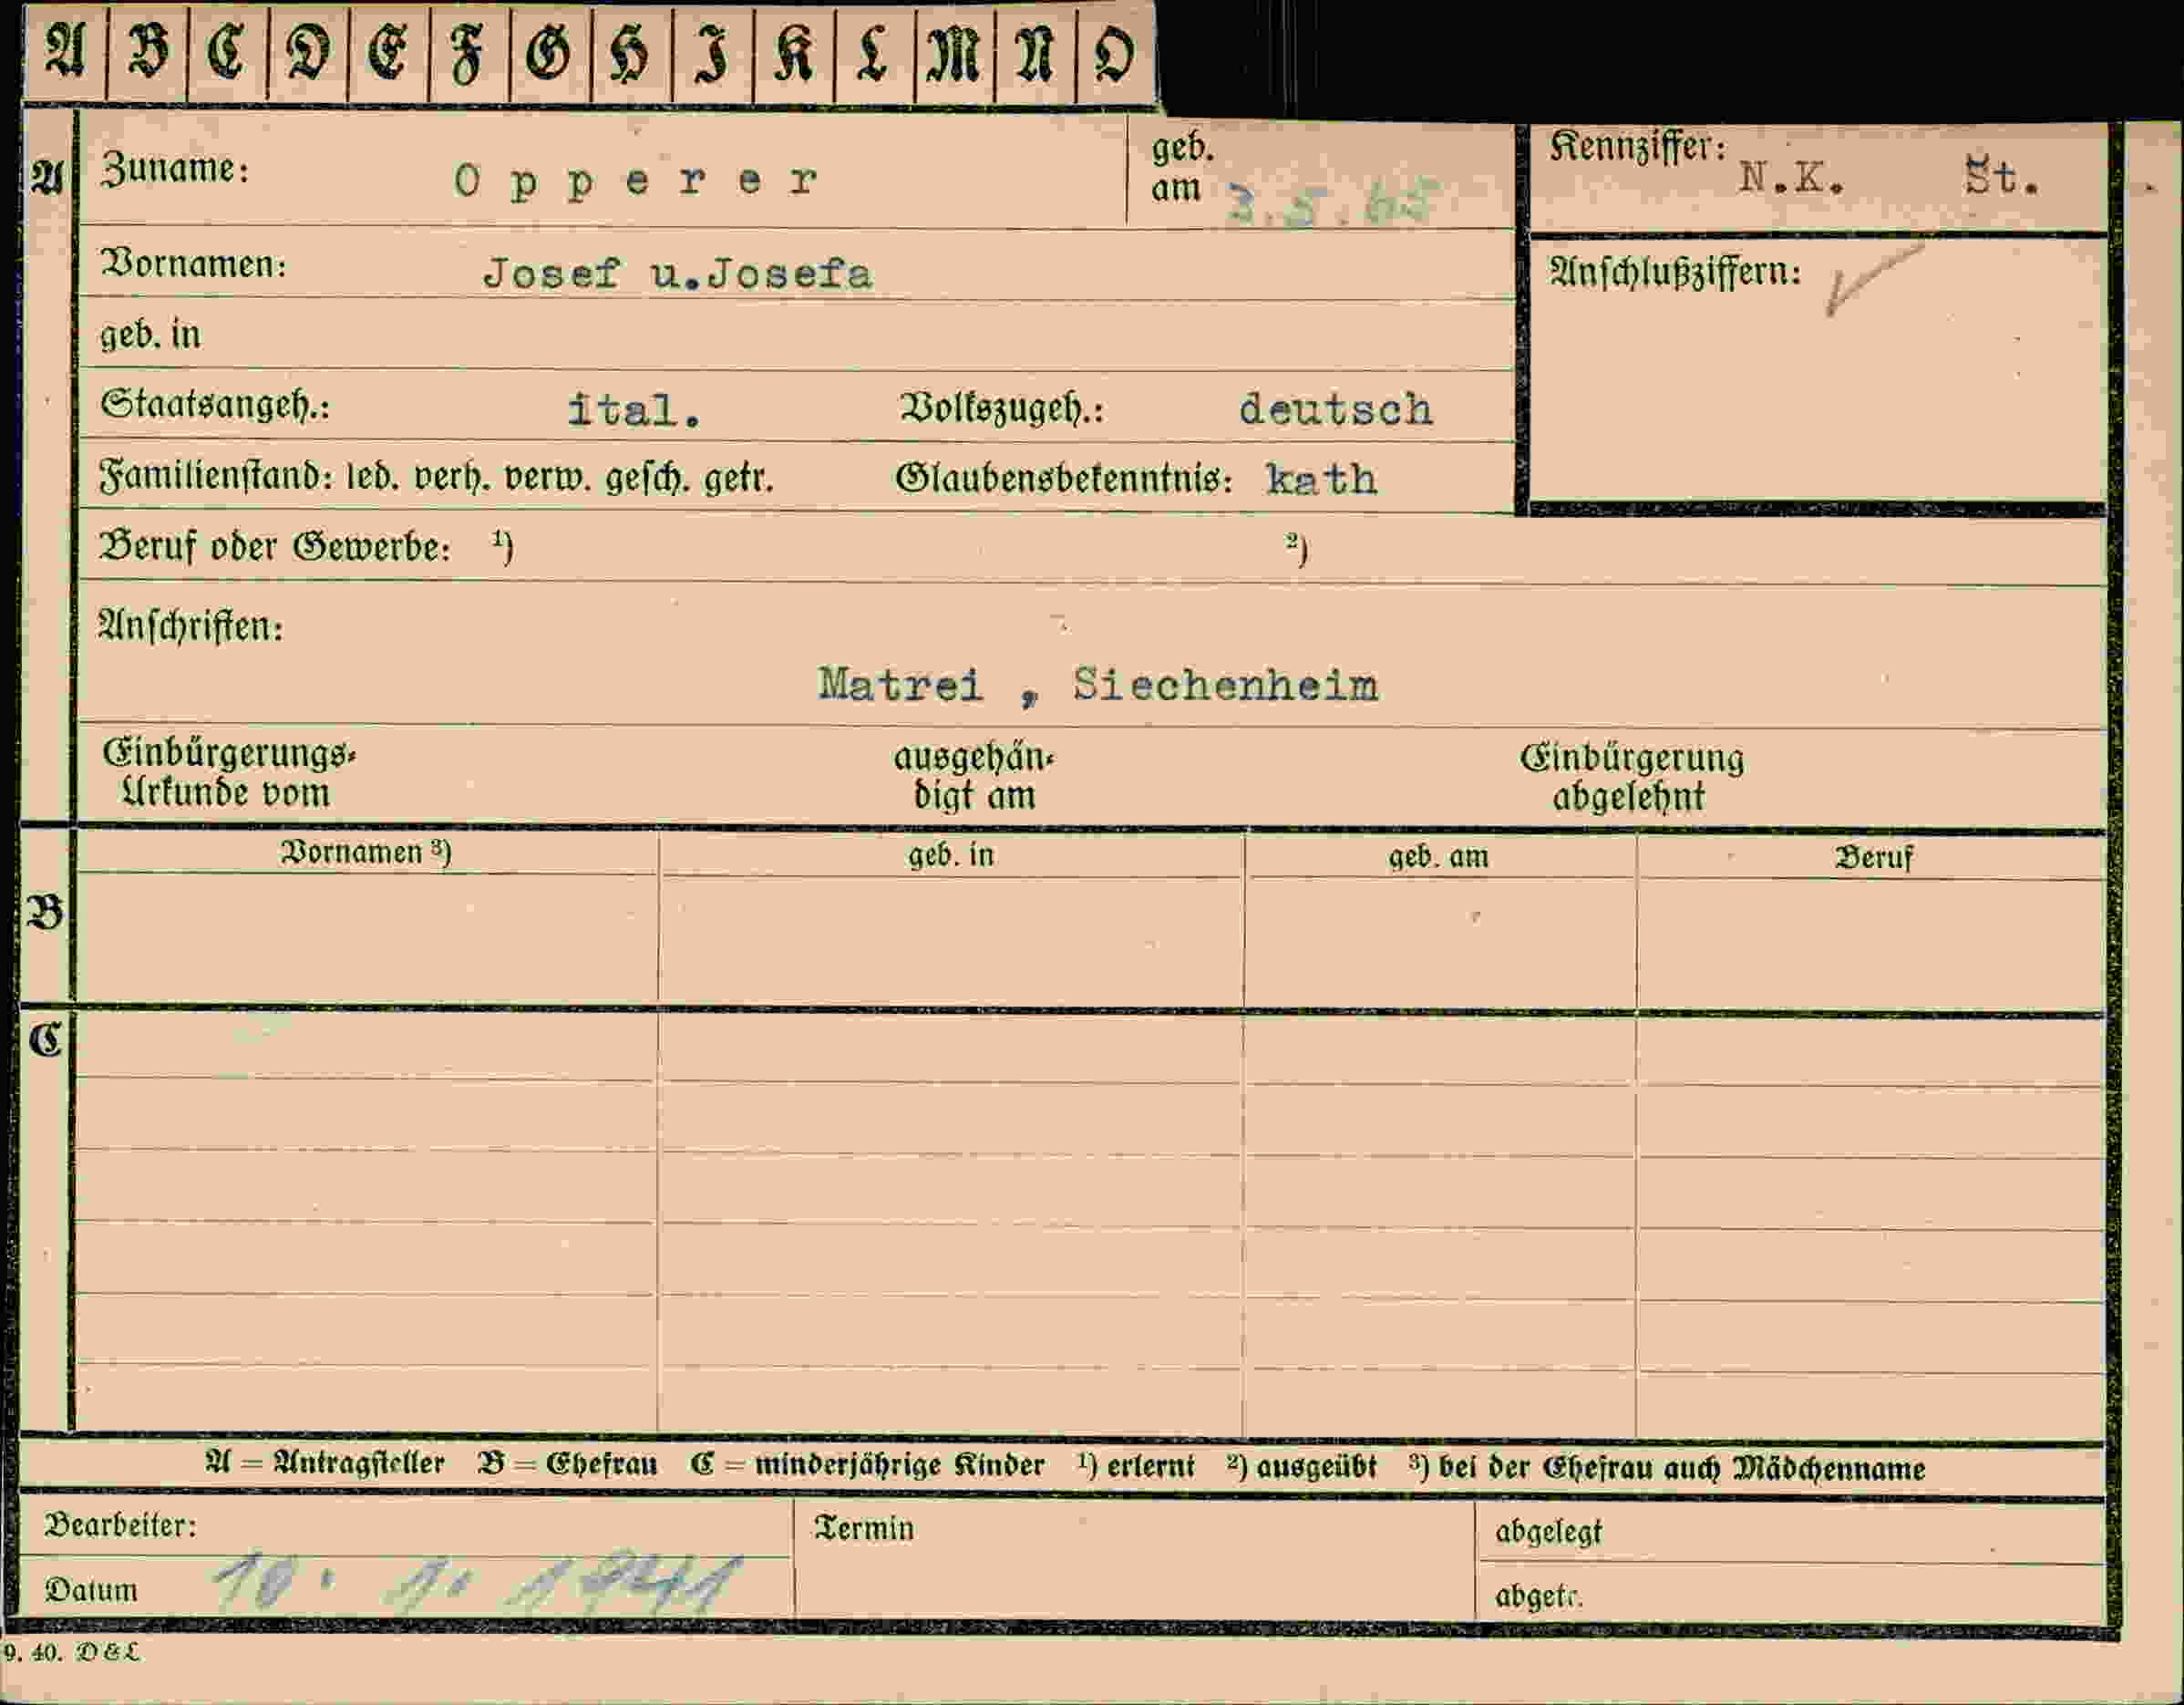 A B C D E F G H I K L M N O
A Zuname: Opperer geb. am 3.5.65 Kennziffer: N.K. St.
Vornamen: Josef u.Josefa Anschlußziffern:
geb. in
Staatsangeh.: ital. Volkszugeh.: deutsch
Familienstand: led. verh. verw. gesch. getr. Glaubensbekenntnis: kath
Beruf oder Gewerbe: ¹) ²)
Anschriften:
Matrei , Siechenheim
Einbürgerungs- ausgehän- Einbürgerung
Urkunde vom digt am abgelehnt
Vornamen ³) geb. in geb. am Beruf
B
C
A = Antragsteller B = Ehefrau C = minderjährige Kinder ¹) erlernt ²) ausgeübt ³) bei der Ehefrau auch Mädchenname
Bearbeiter: Termin abgelegt
Datum 10. 1. 1941 abgetr.
9. 40. D & L